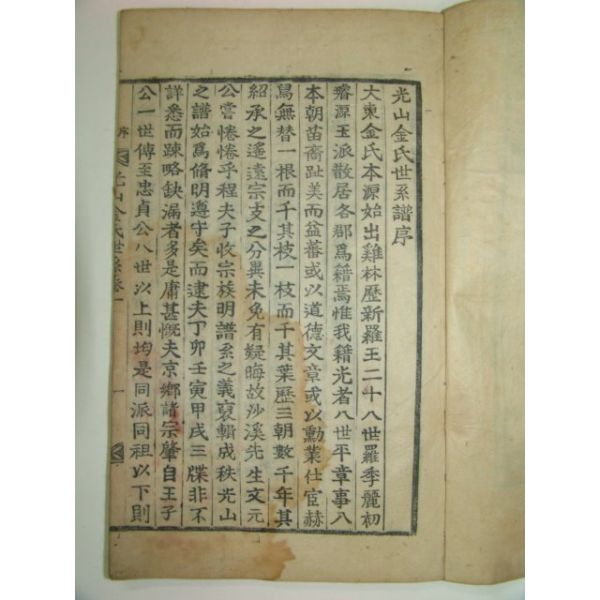 光山金氏世系譜序
大東金氏本源始出雞林歷新羅王二十八世羅季麗初
璿源玉派散居各郡爲籍焉惟我籍光者八世平章事八
本朝苗裔趾美而益蕃或以道德文章或以勳業仕宦赫
舃無替一根而千其枝一枝而千其葉歷三朝數千年其
紹承之遙遠宗支之分異未免有疑晦故沙溪先生文元
公嘗惓惓乎程夫子收宗族明譜系之義裒輯成秩光山
之譜始爲脩明遵守矣而逮夫丁卯壬寅甲戌三牒非不
詳悉而踈略缺漏者多是庸甚慨夫京鄉諸宗肇自王子
公一世傳至忠貞公八世以上則均是同派同祖以下則
序
光山金氏世系卷一
一